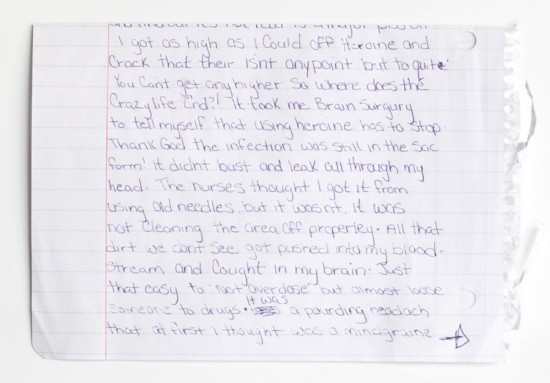 I got as high as I Could off Heroine and
Crack that their isnt any point but to quite
You Cant get any higher. So where does the
Crazy life End?! It took me Brain Surgury
to tell myself that using heroine has to stop.
Thank God the infection was still in the Sac
form! it didnt bust and leak all through my
head. The nurses thought I got it from
using old needles, but it wasnt. It was
not Cleaning the area off properley. All that
dirt we cant See got pushed into my blood-
stream and Cought in my brain. Just
that easy to "not overdose" but almost loose
someone to drugs. It was a pounding headach
that at first I thought was a mindgraine